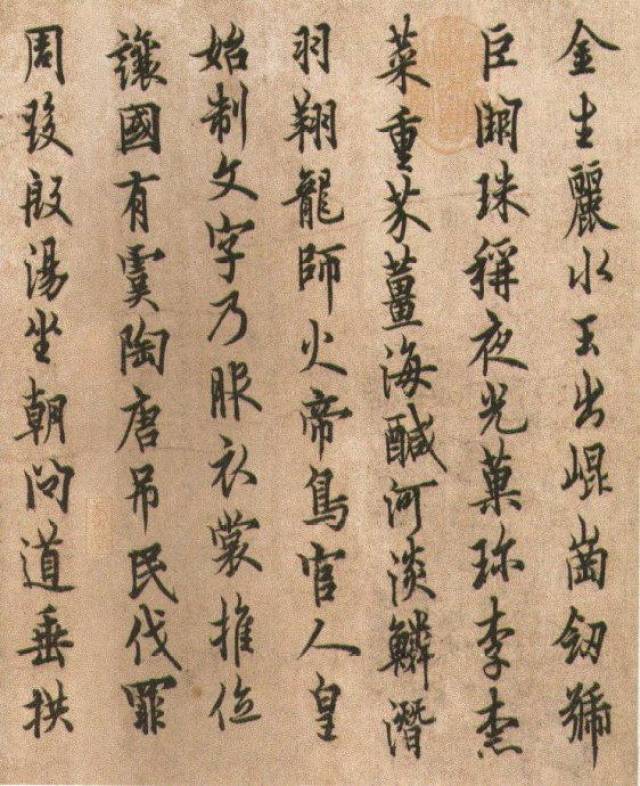 金生麗水玉出崐崗劒號
巨闕珠稱夜光菓珎李柰
菜重芥薑海醎河淡鱗潛
羽翔龍師火帝鳥官人皇
始制文字乃服衣裳推位
讓國有虞陶唐吊民伐罪
周發殷湯坐朝問道垂拱